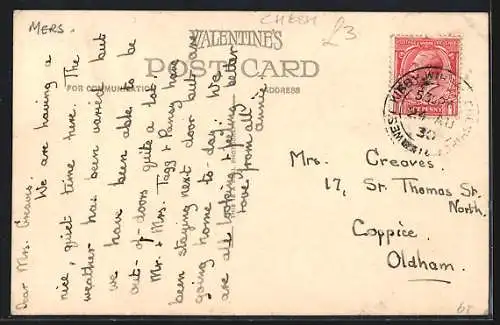 MERS.
CHESH
£3
VALENTINE'S
POST CARD
FOR COMMUNICATION
ADDRESS
Dear Mrs. Greaves.
We are having a
nice, quiet time here. The
weather has been varied but
we have been able to be
out-of-doors quite a lot.
Mr. + Mrs. Tagg + Party have
been staying next door but are
going home to-day. We
are all looking + feeling better
Love from all
Annie.
POSTAGE REVENUE
ONE PENNY
WEST KIRBY WIRRAL
24 AU
30
Mrs. Greaves.
17, St. Thomas St.
North.
Coppice.
Oldham.